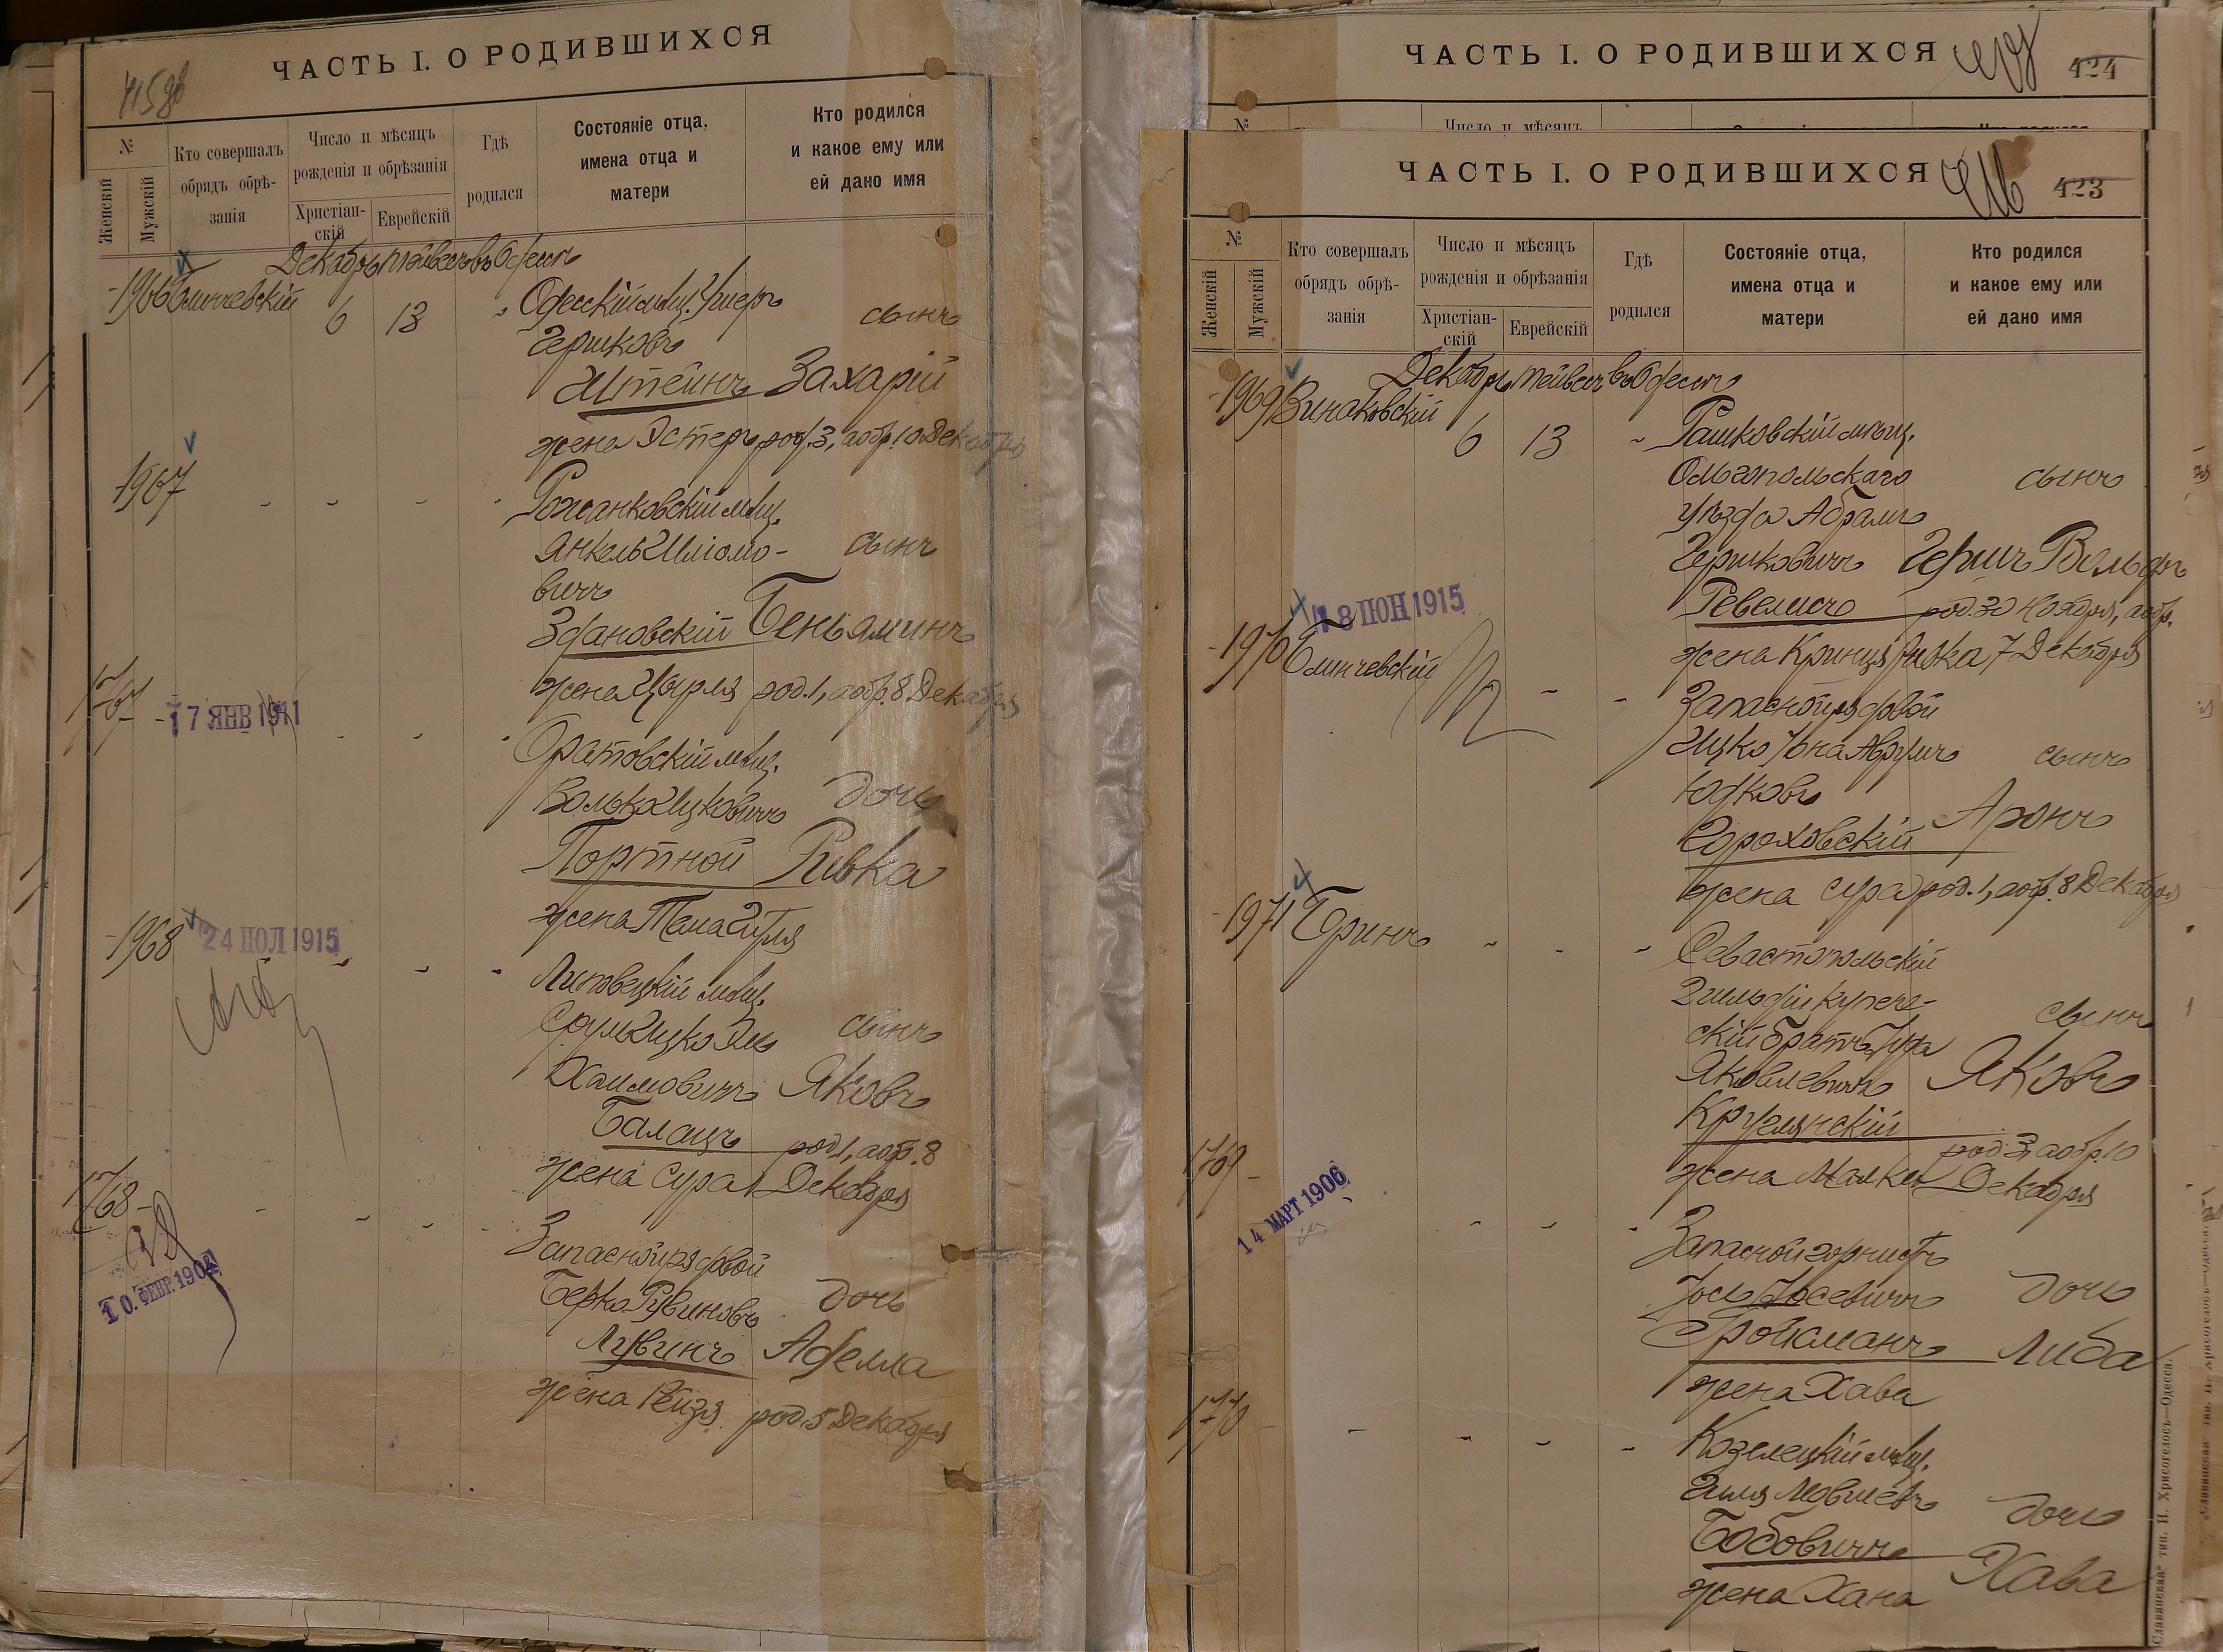 ЧАСТЬ I. О РОДИВШИХСЯ
№
Женскій
Мужскій
Кто совершалъ
обрядъ обрѣ-
занія
Число и мѣсяцъ
рожденія и обрѣзанія
Христіан-
скій
Еврейскій
Гдѣ
родился
Состояніе отца,
имена отца и
матери
Кто родился
и какое ему или
ей дано имя
Декабрь Тейвесъ въ Одессѣ
1966 Елинчевскій 6 13 " Одесскій мѣщ.
Гершковъ сынъ
Штейнъ Захарій
жена Эстеръ род. 3, а обр. 10 Декабря
1967 - - - - Рожанковскій мѣщ.
Янкель Шліомо- сынъ
вичъ
Здановскій Беньяминъ
жена Цырля род. 1, а обр. 8 Декабря
1767 - 17 ЯНВ 1911 - - - Оратовскій мѣщ.
Волько Ицковичъ дочь
Портной Ривка
жена
1968 24 ІЮЛ 1915 - - - Липовецкій мѣщ.
Сруль Ицко сынъ
Хаимовичъ Яковъ
Балацъ род. 1, а обр. 8
жена Сура Декабря
1768 - - - - - Запасной рядовой
10. ФЕВР. 1904
Берко Рувиновъ дочь
Лувинъ Аделла
жена Рейзя род. 5 Декабря
ЧАСТЬ I. О РОДИВШИХСЯ 424
№ Число и мѣсяцъ
ЧАСТЬ I. О РОДИВШИХСЯ 423
№
Женскій
Мужскій
Кто совершалъ
обрядъ обрѣ-
занія
Число и мѣсяцъ
рожденія и обрѣзанія
Христіан-
скій
Еврейскій
Гдѣ
родился
Состояніе отца,
имена отца и
матери
Кто родился
и какое ему или
ей дано имя
Декабрь Тейвесъ въ Одессѣ
1969 Винаковскій 6 13 " Рашковскій мѣщ.
Ольгопольскаго сынъ
уѣзда Абрамъ
Гершковичъ Гершъ Вольфъ
Ревеличъ род. 30 Ноября, а обр.
жена Кринця Ривка 7 Декабря
18 ІЮН 1915
1970 Елинчевскій - - Запасной рядовой
Ицко сынъ
Юдковъ Аронъ
Гороховскій
жена Сура род. 1, а обр. 8 Декабря
1971 Гринъ - - - Севастопольскій
2 гильдіи купече- сынъ
скій братъ
Яковлевичъ Яковъ
Круглянскій род. 3, а обр. 10
жена Малка Декабря
1769 -
14 МАРТ 1906
- - - Запасной горнистъ
Іось Іосевичъ дочь
Гройсманъ Либа
жена Хава
1770 - - - - - Козелецкій мѣщ.
Гиля Мовшевъ дочь
Бобовичъ Хава
жена Хана
„Славянская" тип. Н. Хрисогелосъ—Одесса.